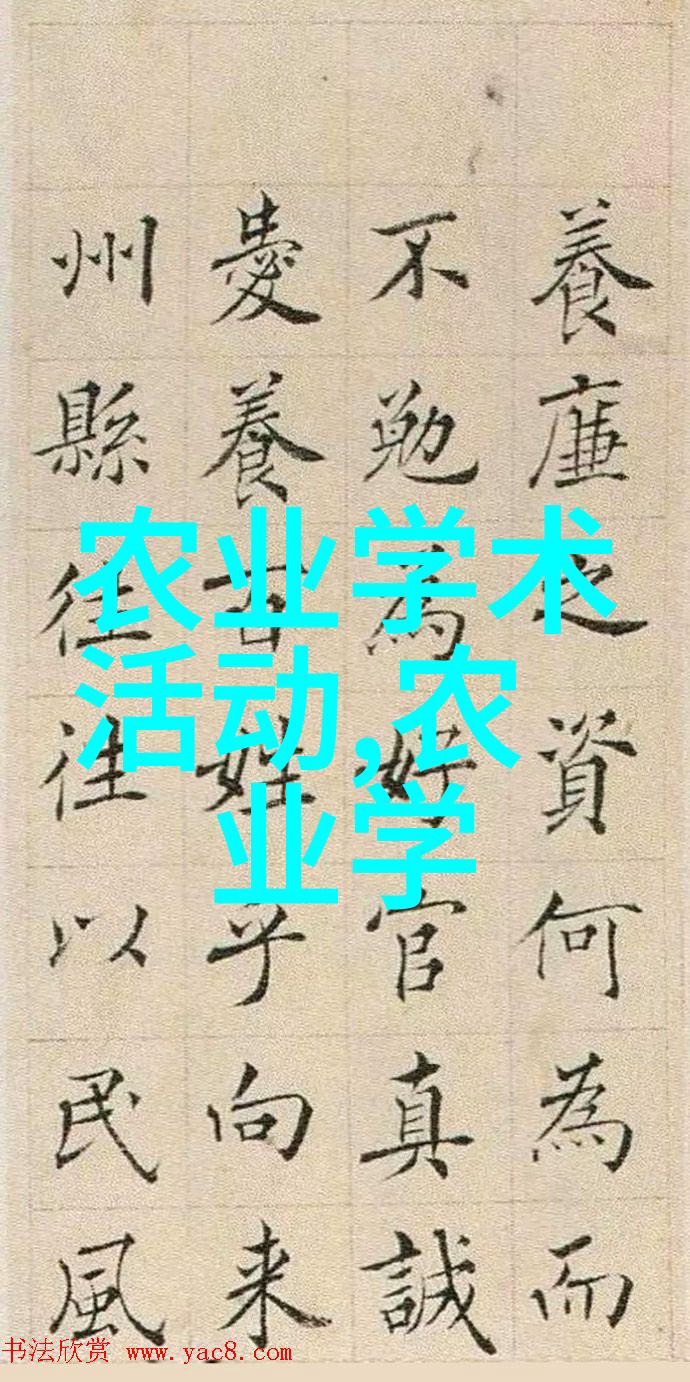 養廉之資何為而
不勉為好官真誠
愛養百姓乎向来
州縣往往以民風
农业学术
活动,农
业学
书法欣赏 www.yac8.com